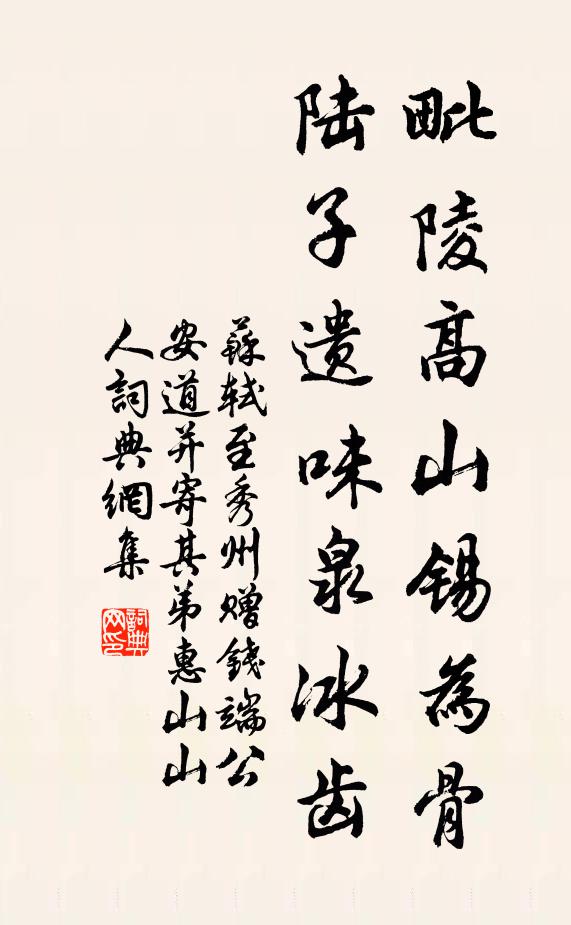 毗陵高山锡為骨
陆子遗味泉冰齿
蘇轼至秀州赠錢端公
安道并寄其弟惠山山
人詞典網集
詞典
网印